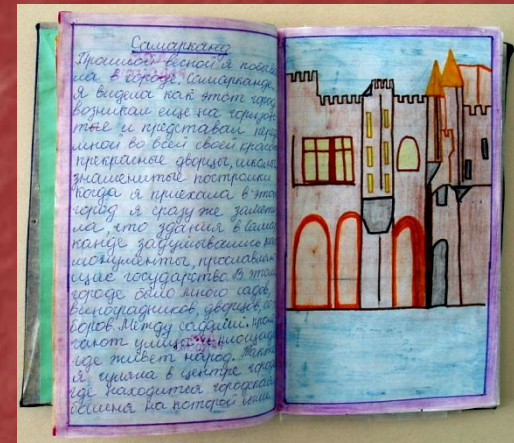 Самарканд
Прошлой весной я побыва
ла в городе Самарканде,
я видела как этот город
возникал еще на горизон
те и представал перед
мной во всей своей красе
прекрасные дворцы, школы
знаменитые постройки
когда я приехала в этот
город я сразу же замети
ла, что здания в Самар
канде задумывались как
монументы, прославляю
щие государство. В этом
городе было много садов,
виноградников, дворцов, со
боров. Между садами про
легают улицы и площади
где живет народ. Также
я гуляла в центре города
где находится городская
башня на которой